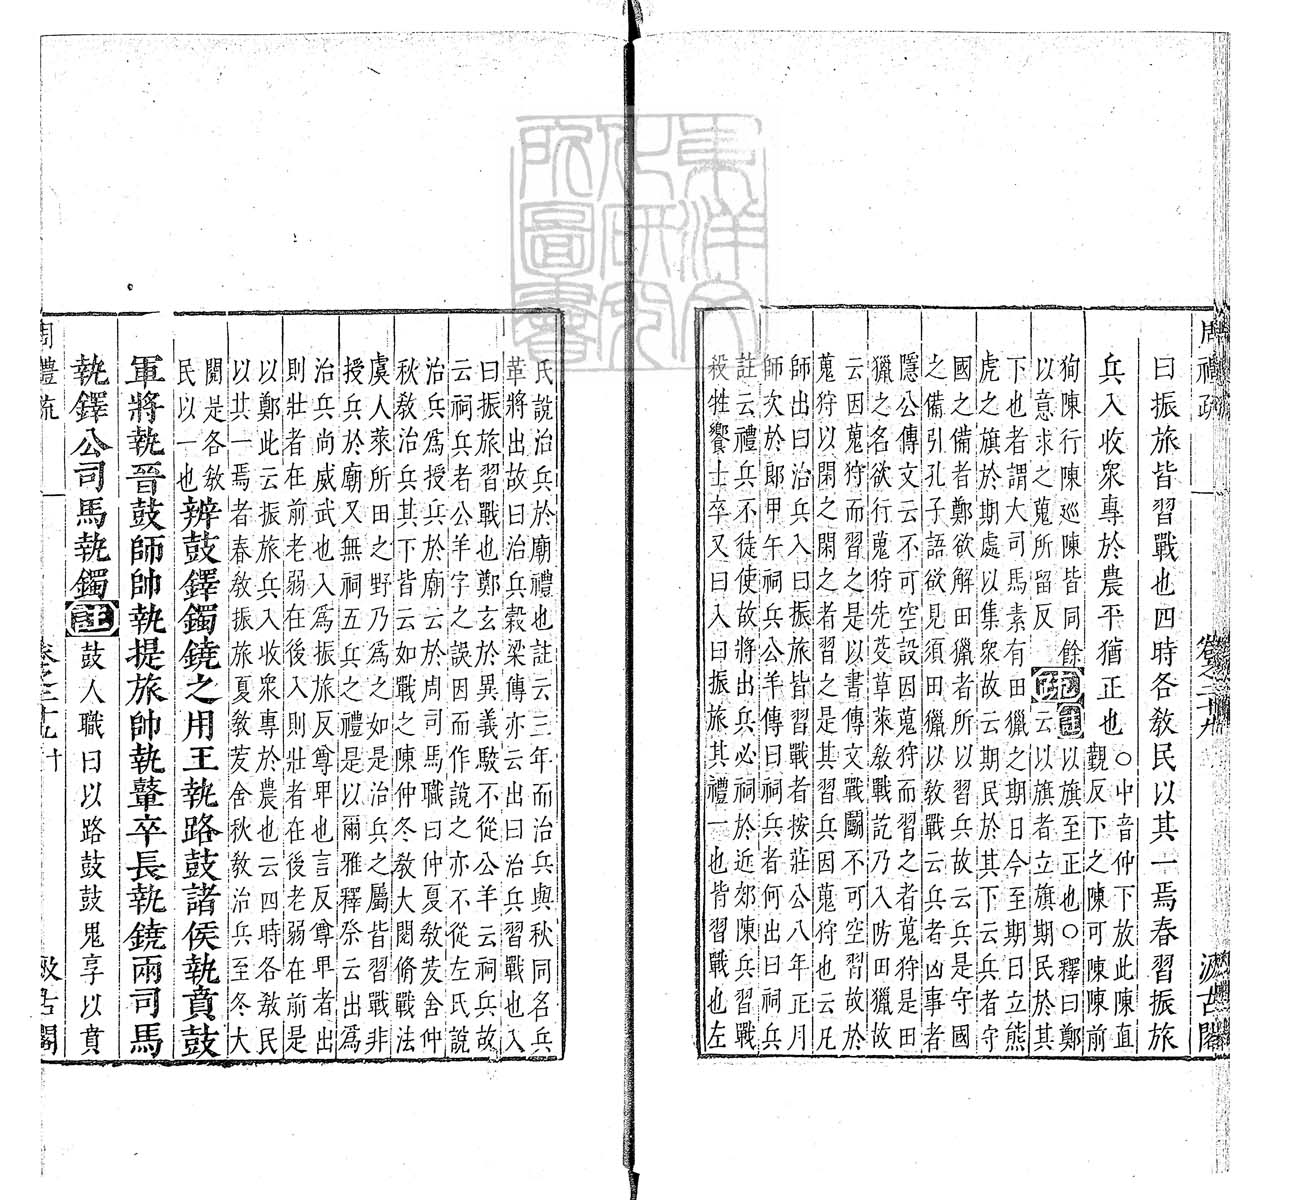 周禮疏 卷之二十九 汲古閣
曰振旅皆習戰也四時各敎民以其一焉春習振旅
兵入收衆專於農平猶正也○中音仲下放此陳直
觀反下之陳可陳陳前
狥陳行陳廵陳皆同餘
以意求之蒐所留反
疏
註
以旗至正也○釋曰鄭
云以旗者立旗期民於其
下也者謂大司馬素有田獵之期日今至期日立熊
虎之旗於期處以集衆故云期民於其下云兵者守
國之備者鄭欲解田獵者所以習兵故云兵是守國
之備引孔子語欲見須田獵以敎戰云兵者凶事者
隱公傳文云不可空設因蒐狩而習之者蒐狩是田
獵之名欲行蒐狩先芟草萊敎戰訖乃入防田獵故
云因蒐狩而習之是以書傳文戰鬭不可空習故於
蒐狩以閑之閑之者習之是其習兵因蒐狩也云凡
師出曰治兵入曰振旅皆習戰者按莊公八年正月
師次於郞甲午祠兵公羊傳曰祠兵者何出曰祠兵
註云禮兵不徒使故將出兵必祠於近郊陳兵習戰
殺牲饗士卒又曰入曰振旅其禮一也皆習戰也左
氏說治兵於廟禮也註云三年而治兵與秋同名兵
革將出故曰治兵穀梁傳亦云出曰治兵習戰也入
曰振旅習戰也鄭玄於異義駮不從公羊云祠兵故
云祠兵者公羊字之誤因而作說之亦不從左氏說
治兵爲授兵於廟云於周司馬職曰仲夏敎茇舍仲
秋敎治兵其下皆云如戰之陳仲冬敎大閱脩戰法
虞人萊所田之野乃爲之如是治兵之屬皆習戰非
授兵於廟又無祠五兵之禮是以爾雅釋祭云出爲
治兵尚威武也入爲振旅反尊卑也言反尊卑者出
則壯者在前老弱在後入則壯者在後老弱在前是
以鄭此云振旅兵入收衆專於農也云四時各敎民
以其一焉者春敎振旅夏敎茇舍秋敎治兵至冬大
閱是各敎
民以一也
辨鼓鐸鐲鐃之用王執路鼓諸侯執賁鼓
軍將執晉鼓師帥執提旅帥執鼙卒長執鐃兩司馬
執鐸公司馬執鐲註鼓人職曰以路鼓鼓鬼享以賁
周禮疏 卷之二十九 十 汲古閣
東洋文化研究所圖書